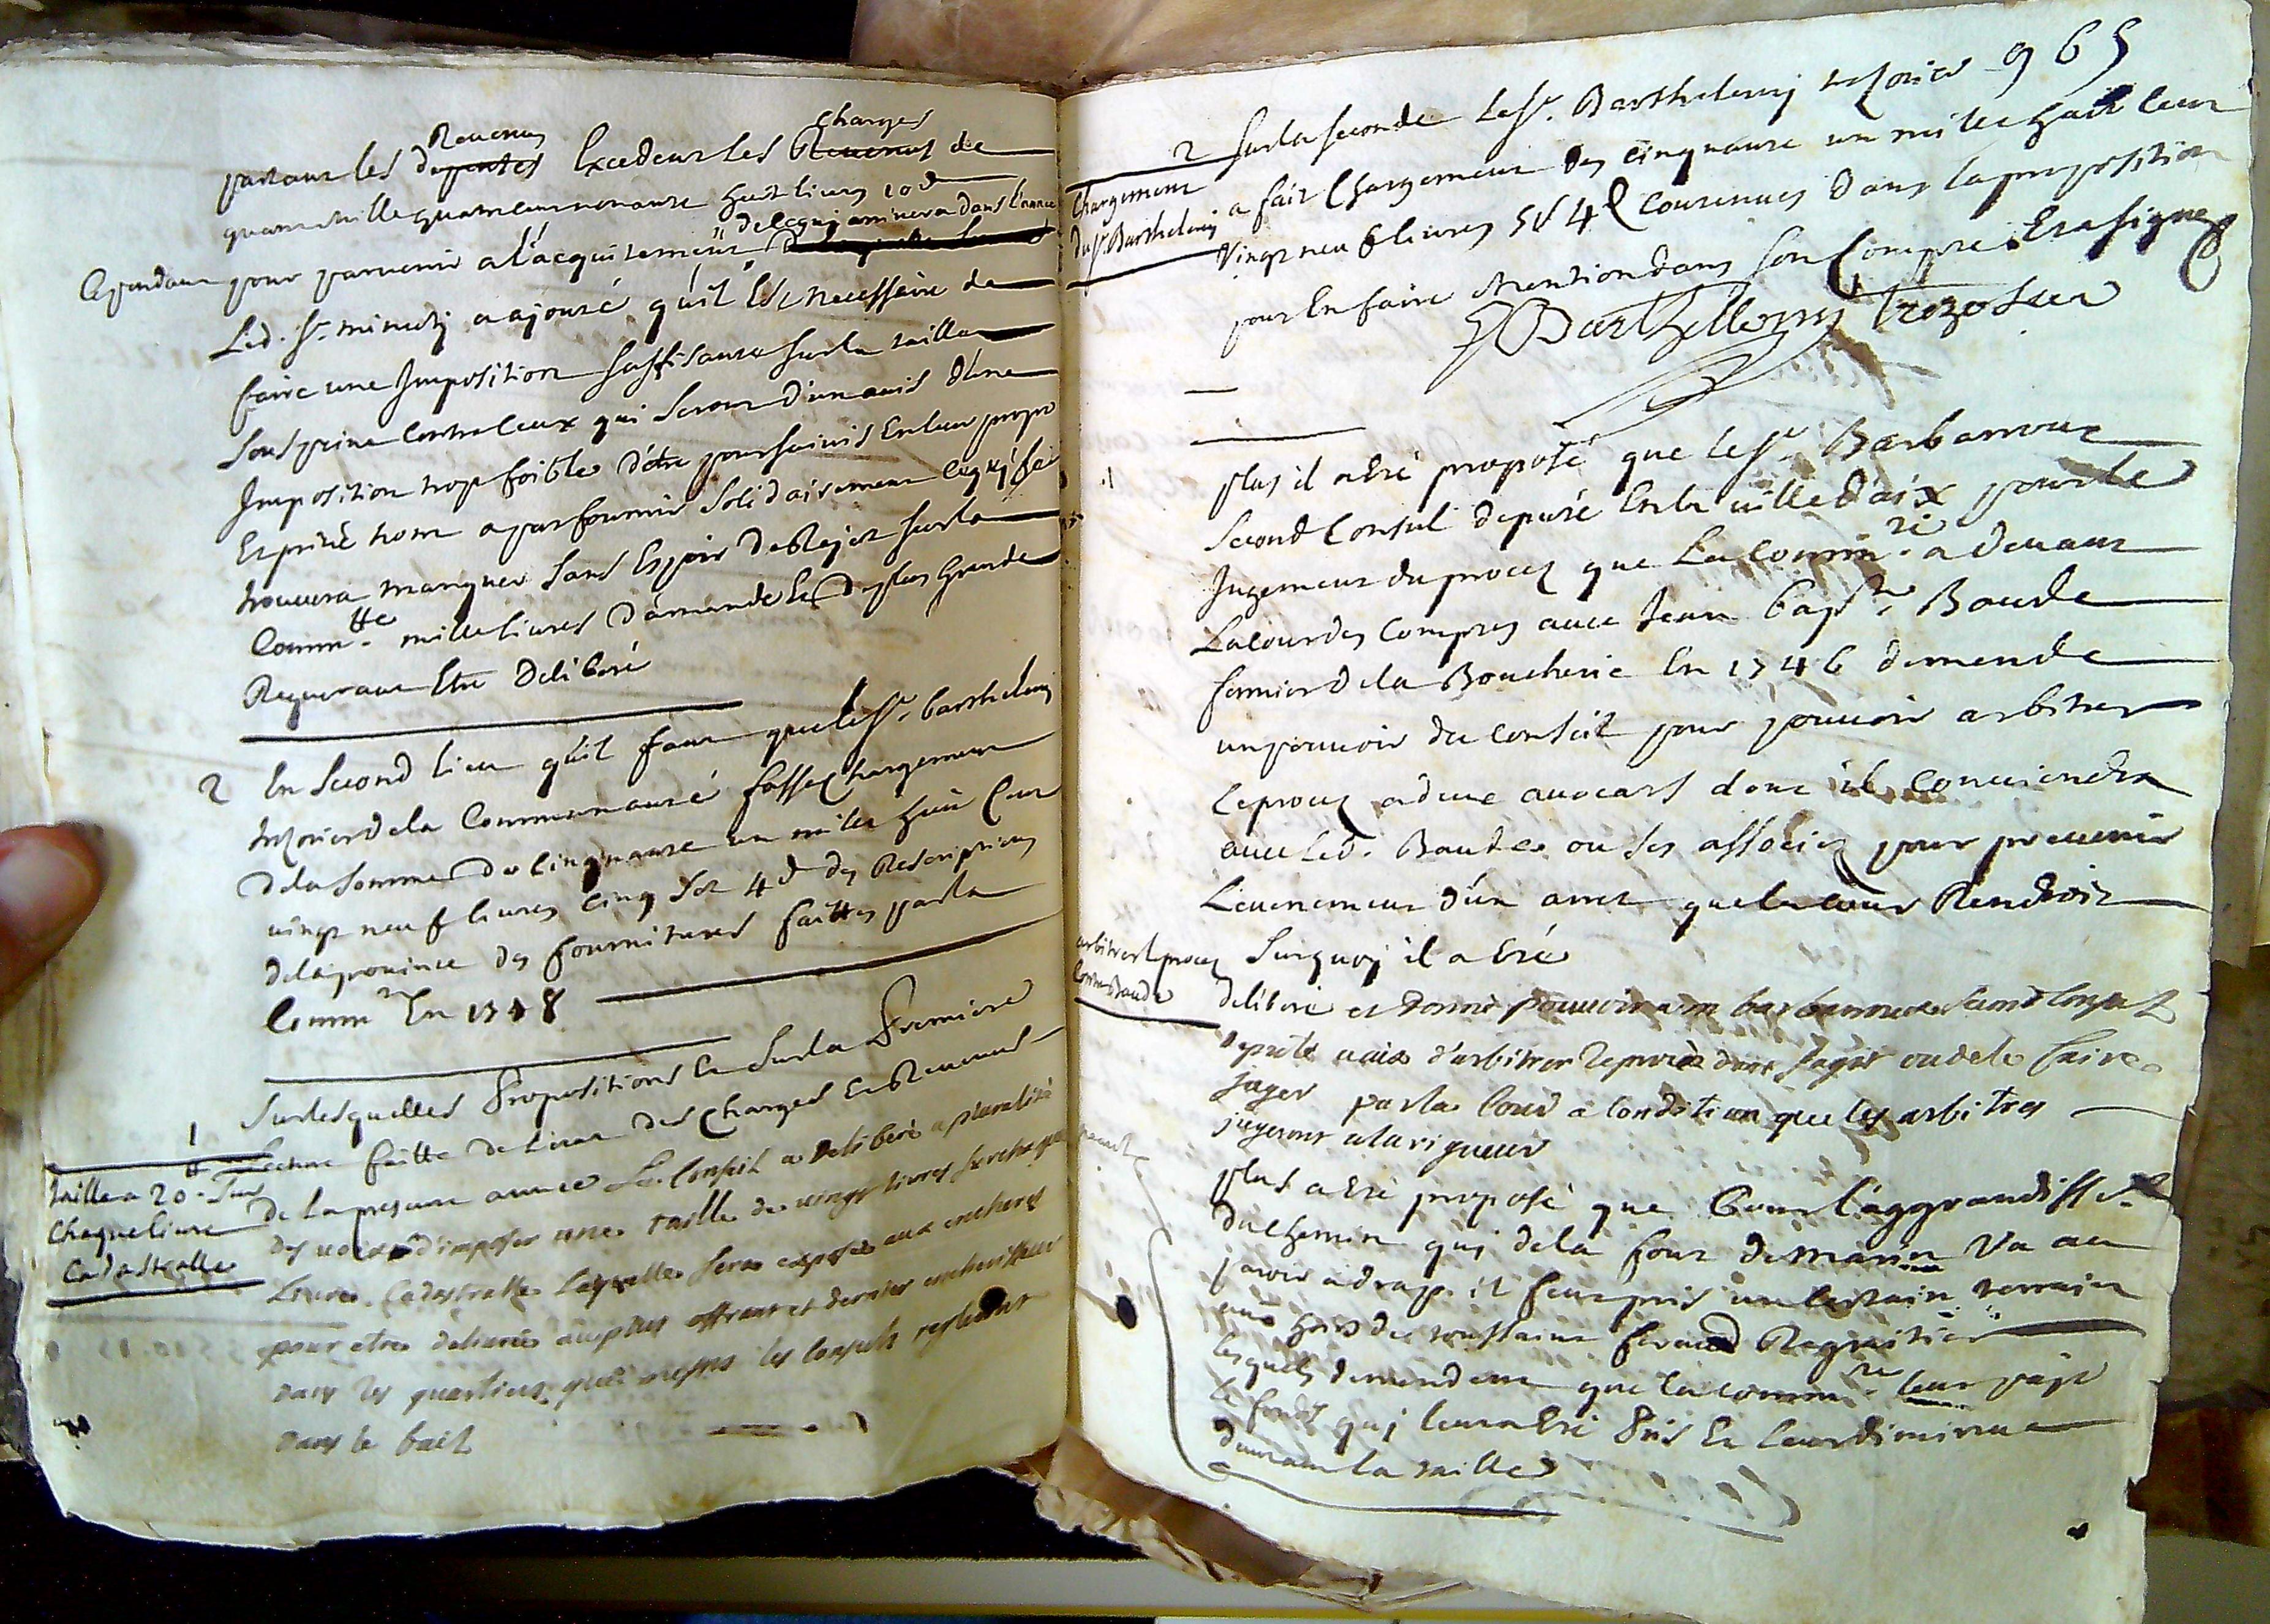 Revenus charges
partant les depentes Excedent les Revenus de
quatre mille quatre cent nonante huit livres 10 d
de ce qui arrivera dans l'année
Cependant pour parvenir a l'acquitement
Led. Sr. minuty a ajouté qu'il Est necessaire de
faire une Imposition suffisante sur la taille
sous peine contre Ceux qui seront d'un avis d'une
Imposition trop foible d'étre poursuivis En leur propre
Et privé nom a parfournir solidairement Ce qui se
trouvera manquer sans Espoir de Rejet sur la
Commtté. mille livres d'amande Et de plus Grande
Requerant Etre Délibéré
2 En second lieu qu'il faut que le Sr. barthelemy
trezorier de la Communauté fasse chargement
de la somme de Cinquante un mille huit Cent
vingt neuf livres Cinq sols 4 d des Rescriptions
de la province des fournitures faittes par la
Commté En 1748
Sur lesquelles Propositions Et sur la Premiere
1 Lecture faitte de l'état des Charges Et Revenus
taille a 20 tt sur
chaque livre
Cadastralle
De La presente année Le Conseil a Delibéré a pluralité
des voix d'imposer une taille de vingt livres sur chaque
Livre Cadastralle Laquelle sera exposée aux encheres
pour etre delivrée au plus offrant et dernier encherisseur
dans les quartiers que messrs les Consuls regleront
dans le bail
965
2 Sur la seconde Le Sr. Barthelemy trezorier
Chargement
du Sr. Barthelemy
a fait Chargement des Cinquante un mille huit Cent
Vingt neuf livres 5 s 4 d Contenues Dans la proposition
pour En faire Mention dans son Compte Et a signé
Barthellemy trezorier
plus il a Eté proposé que le Sr. Barbaroux
second Consul deputé En la ville d'aix pour le
Jugement du procez que La Commté. a devant
La Cour des Comptes avec Jean bapte. Baude
fermier de la Boucherie En 1746 demende
un pouvoir du Conseil pour pouvoir arbitrer
Le procez a deux avocats dont il Conviendra
avec Led. Baude ou ses associez pour prevenir
L'evenement d'un arret que la Cour Rendroit
Sur quoy il a Eté
arbitrer le procez
Contre Baude
delibéré et donné pouvoir a mr barbaroux second Consul
deputé a aix d'arbitrer le procès dont s'agit ou de le faire
juger par la Cour a Condition que les arbitres
jugeront a la rigueur
plus a Eté proposé que Pour l'aggrandisst
du chemin qui de la font de marin Va au
paroir a drap il feut pris un Certain terrain
aux hoirs de toussaint feraud Ragnitier
lesquels demendent que la Commté. leur paye
le fonds qui leur a Eté Pris Et leur diminue
d'autant la taille